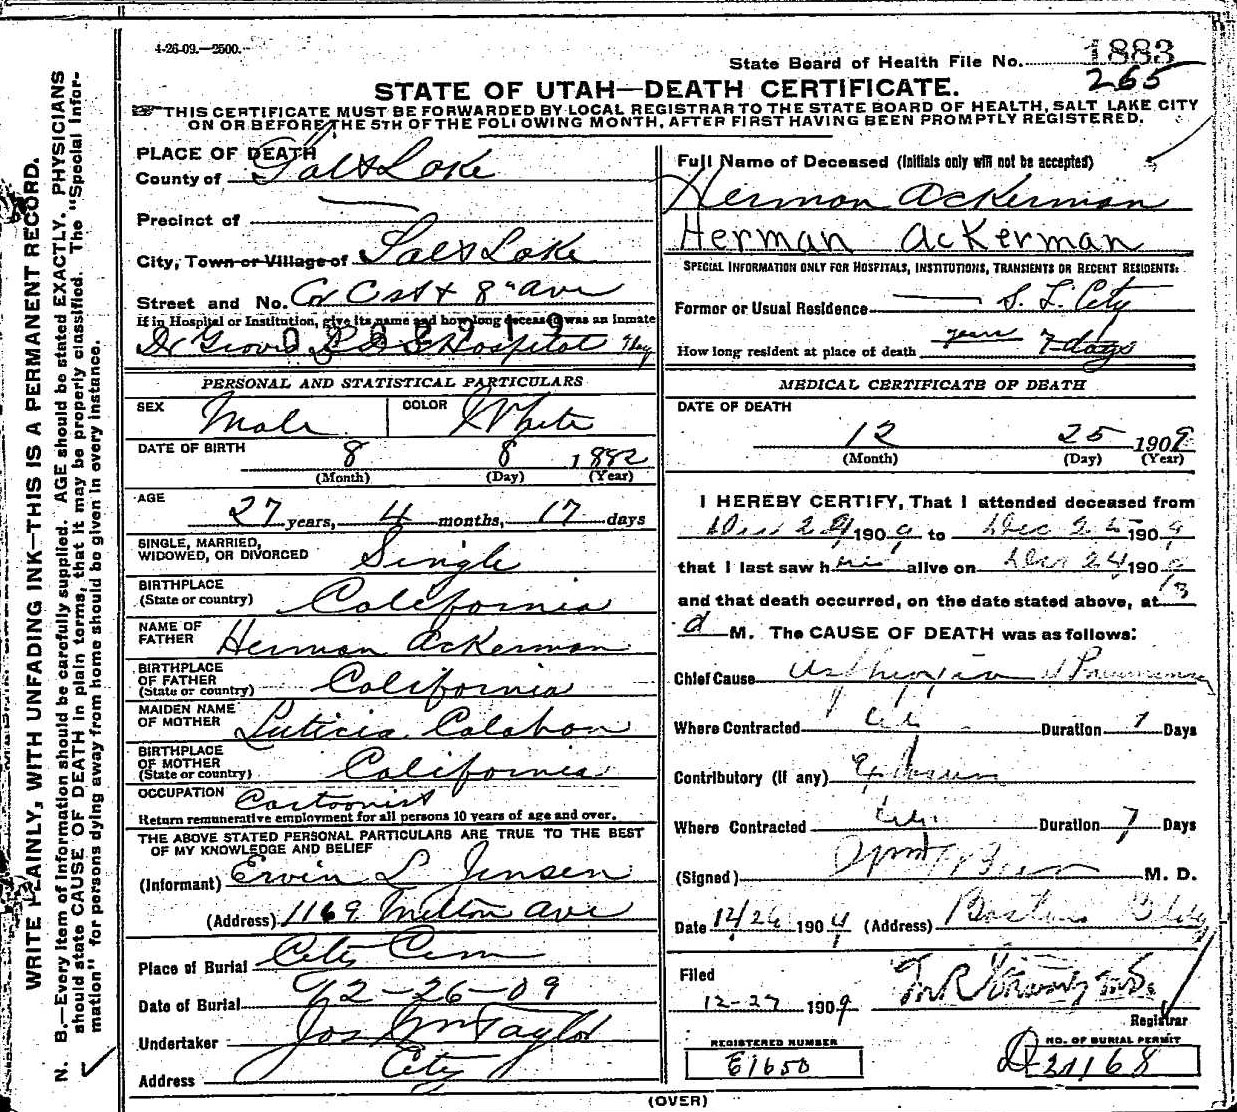 4-26-09.—2500.
State Board of Health File No. 1883
265
STATE OF UTAH—DEATH CERTIFICATE.
THIS CERTIFICATE MUST BE FORWARDED BY LOCAL REGISTRAR TO THE STATE BOARD OF HEALTH, SALT LAKE CITY
ON OR BEFORE THE 5TH OF THE FOLLOWING MONTH, AFTER FIRST HAVING BEEN PROMPTLY REGISTERED.
WRITE PLAINLY, WITH UNFADING INK—THIS IS A PERMANENT RECORD.
N. B.—Every item of information should be carefully supplied. AGE should be stated EXACTLY. PHYSICIANS
should state CAUSE OF DEATH in plain terms, that it may be properly classified. The "Special Infor-
mation" for persons dying away from home should be given in every instance.
PLACE OF DEATH
County of Salt Lake
Precinct of
City, Town or Village of Salt Lake
Street and No. Cor C st & 8th ave
If in Hospital or Institution, give its name and how long deceased was an inmate
Dr Groves L D S Hospital 7 day
PERSONAL AND STATISTICAL PARTICULARS
SEX Male COLOR White
DATE OF BIRTH 8 8 1882
(Month) (Day) (Year)
AGE
27 years, 4 months, 17 days
SINGLE, MARRIED,
WIDOWED, OR DIVORCED Single
BIRTHPLACE
(State or country) California
NAME OF
FATHER Herman Ackerman
BIRTHPLACE
OF FATHER
(State or country) California
MAIDEN NAME
OF MOTHER Luticia Calahan
BIRTHPLACE
OF MOTHER
(State or country) California
OCCUPATION Cartoonist
Return remunerative employment for all persons 10 years of age and over.
THE ABOVE STATED PERSONAL PARTICULARS ARE TRUE TO THE BEST
OF MY KNOWLEDGE AND BELIEF
(Informant) Ervin L Jensen
(Address) 1169 Milton Ave
Place of Burial City Cem
Date of Burial 12-26-09
Undertaker Jos Wm Taylor
Address City
Full Name of Deceased (Initials only will not be accepted)
Herman Ackerman
Herman Ackerman
SPECIAL INFORMATION ONLY FOR HOSPITALS, INSTITUTIONS, TRANSIENTS OR RECENT RESIDENTS:
Former or Usual Residence S. L. City
How long resident at place of death years 7 days
MEDICAL CERTIFICATE OF DEATH
DATE OF DEATH
12 25 1909
(Month) (Day) (Year)
I HEREBY CERTIFY, That I attended deceased from
190 9 to Dec 25 190 9
that I last saw h im alive on Dec 24 190 9
and that death occurred, on the date stated above, at
M. The CAUSE OF DEATH was as follows:
Chief Cause Pneumonia
Where Contracted City Duration 7 Days
Contributory (if any)
Where Contracted City Duration 7 Days
(Signed) M. D.
Date 12/26 190 9 (Address) Boston Bldg
Filed
12-27 1909
Registrar
REGISTERED NUMBER
E1650
NO. OF BURIAL PERMIT
D 21168
(OVER)